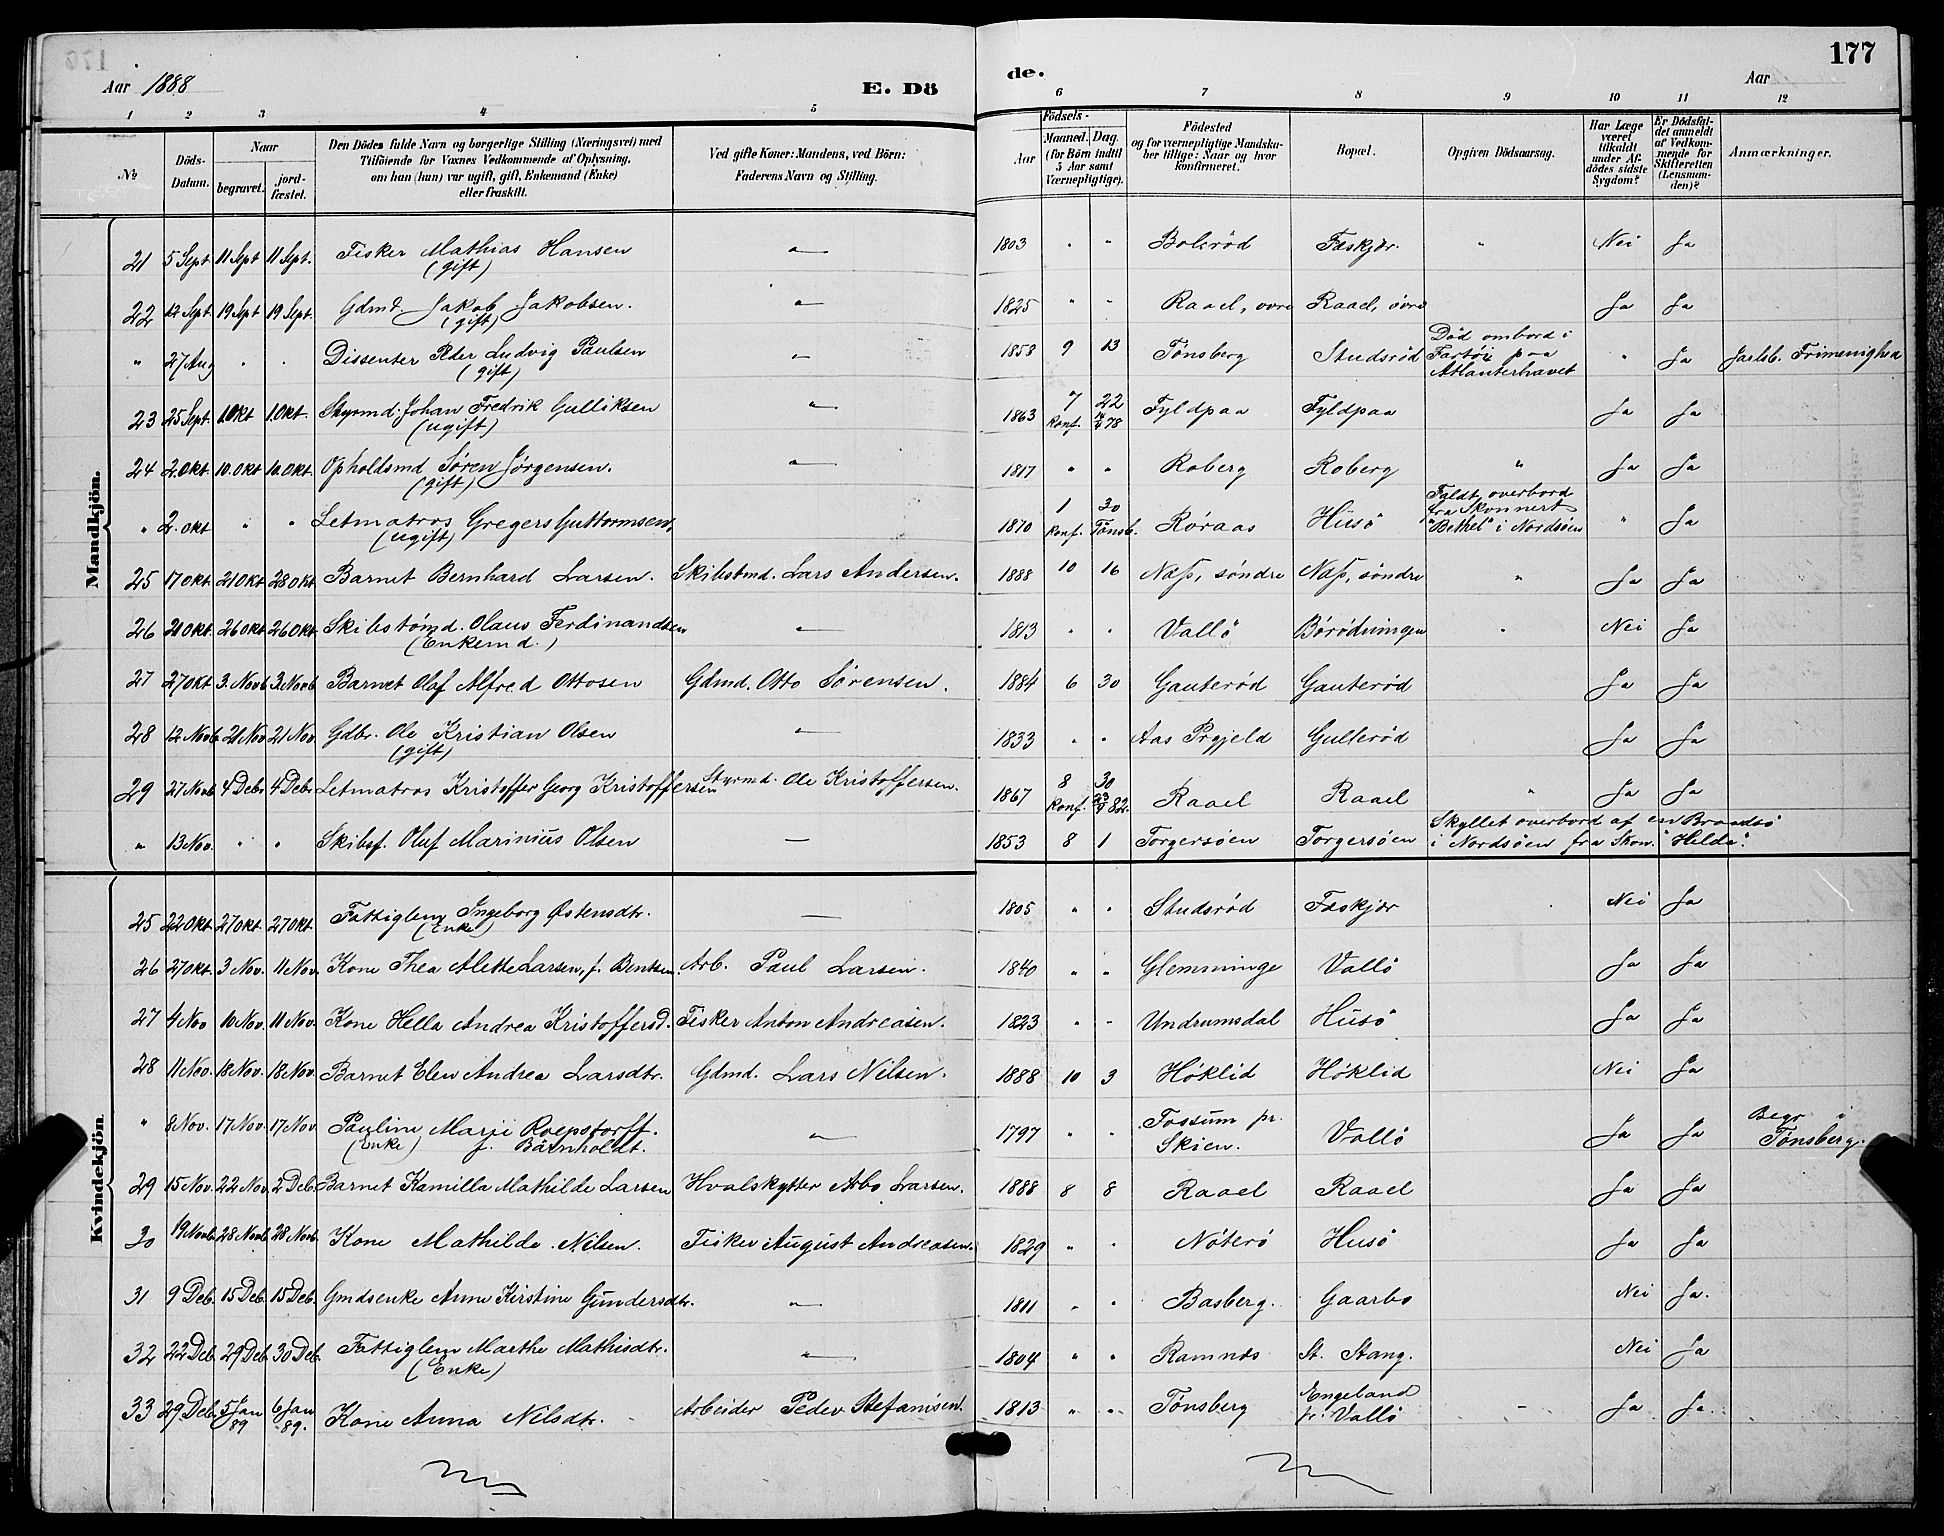 Aar 1888
E. Dö
de.
Aar
177
1 2 3 4 5 6 7 8 9 10 11 12
No
Döds-Datum.
Naar
begravet.
jord-fæstet.
Den Dödes fulde Navn og borgerlige Stilling (Næringsvei) med
Tilföiende for Voxnes Vedkommende af Oplysning,
om han (hun) var ugift, gift, Enkemand (Enke)
eller fraskilt.
Ved gifte Koner: Mandens, ved Börn:
Faderens Navn og Stilling.
Födsels-
Aar
Maaned. Dag.
(for Börn indtil
5 Aar samt
Værnepligtige).
Födested
og for værnepligtige Mandska-
ber tillige: Naar og hvor
konfirmeret.
Bopæl.
Opgiven Dödsaarsag.
Har Læge
været
tilkaldt
under Af-
dödes sidste
Sygdom?
Er Dödsfal-
det anmeldt
af Vedkom-
mende for
Skifteretten
(Lensman-
den)?
Anmærkninger.
Mandkjön.
21 5 Sept 11 Sept 11 Sept. Fisker Mathias Hansen (gift) " 1803 " " Bolerød Feskjær. " Nei Ja
22 12 Sept. 19 Sept 19 Sept. Gdmd. Jakob Jakobsen. (gift) " 1825 " " Raael, øvre Raael, øvre Ja Ja
" 27 Aug " " Dissenter Peder Ludvig Paulsen (gift) " 1858 9 13 Tønsberg Studsrød Død ombord i Fartøi paa Atlanterhavet " Ja Jarlsb. Frimenighed
23 25 Sept. 1 Okt 1. Okt. Styrmd. Johan Fredrik Gulliksen (ugift) " 1863 7 22 Konf. 78 Fyldpaa Fyldpaa Ja Ja
24 2. Okt 10. Okt 10. Okt. Opholdsmd Søren Jørgensen. (gift) " 1817 " " Roberg Roberg " Ja Ja
" 2. Okt " " Letmatros Gregers Guttormsen, (ugift) 1870 1 30 Konf. Tønsb. Røraas Husö Faldt overbord fra Skonnert "Bethel" i Nordsøen " Ja
25 17 Okt. 21 Okt 28 Okt Barnet Bernhard Larsen. Skibstmd. Lars Andersen. 1888 10 16 Næss, söndre Næss, söndre " Ja Ja
26 21 Okt. 26 Okt 26 Okt. Skibstømd. Olaus Ferdinandsen (Enkemd.) " 1813 " " Vallö Börødningen " Nei Ja
27 27 Okt 3. Novb 3. Novb Barnet Olaf Alfred Ottosen Gdmd. Otto Sørensen. 1884 6 30 Gauterød Gauterød Ja Ja
28 12 Novb. 21 Nov 21 Nov. Gdbr. Ole Kristian Olsen (gift) " 1833 " " Aas Prgjeld Gullerød Ja Ja
29 27 Novb 4 Debr 4 Debr Letmatros Kristoffer Georg Kristoffersen Styrmd. Ole Kristoffersen. 1867 8 30 Konf. 82. Raael Raael " Ja Ja
" 13 Nov. " " Skibsf. Oluf Marinius Olsen — 1853 8 1 Torgersøen Torgersøen Skyllet overbord af en Brandsö i Nordsøen fra Skon. "Hilda".
Kvindekjön
25 22 Okt. 27 Okt. 27 Okt. Fattiglem Ingeborg Østensdtr. (Enke) — 1805 " " Studsrød Feskjær Nei Ja
26 27 Okt. 3 Nov. 11 Nov. Kone Thea Alette Larsen, f. Bentsen. Arb. Paul Larsen. 1840 " " Glemminge Vallö Ja Ja
27 4 Nov 10 Nov. 11 Nov. Kone Hella Andrea Kristoffersd. Fisker Anton Andreasen. 1823 " " Undrumsdal Husö Ja Ja
28 11 Nov. 18 Nov. 18 Nov. Barnet Elen Andrea Larsdtr. Gdmd. Lars Nilsen. 1888 10 3 Høklid Høklid Nei Ja
" 8 Nov. 17 Nov. 17 Nov. Pauline Marie Roepstorff. (Enke) f. Bärnholdt. " 1797 " " Fossum pr. Skien. Vallö Ja Ja Begr i Tønsberg.
29 15 Nov. 22 Nov. 2 Debr. Barnet Kamilla Mathilde Larsen Hvalskytter Arbo Larsen. 1888 8 8 Raael Raael Ja Ja
30 19 Novb. 28 Novb. 28 Novb. Kone Mathilde Nilsen. Fisker August Andreasen. 1829 " " Nøterø Husö Ja Ja
31 9 Deb. 15 Deb. 15 Deb. Gmdsenke Anne Kirstine Gundersdtr. " 1811 " " Basberg. Gaarbo Nei Ja.
32 22 Deb. 29 Deb. 30 Deb. Fattiglem Marthe Mathisdtr. (Enke) " 1804 " " Ramnæs St. Stang. Nei Ja
33 29 Deb. 5 Jan 89 6 Jan 89. Kone Anna Nilsdtr. Arbeider Peder Stefansen. 1813 " " Tønsberg Engeland pr. Vallö Ja Ja.